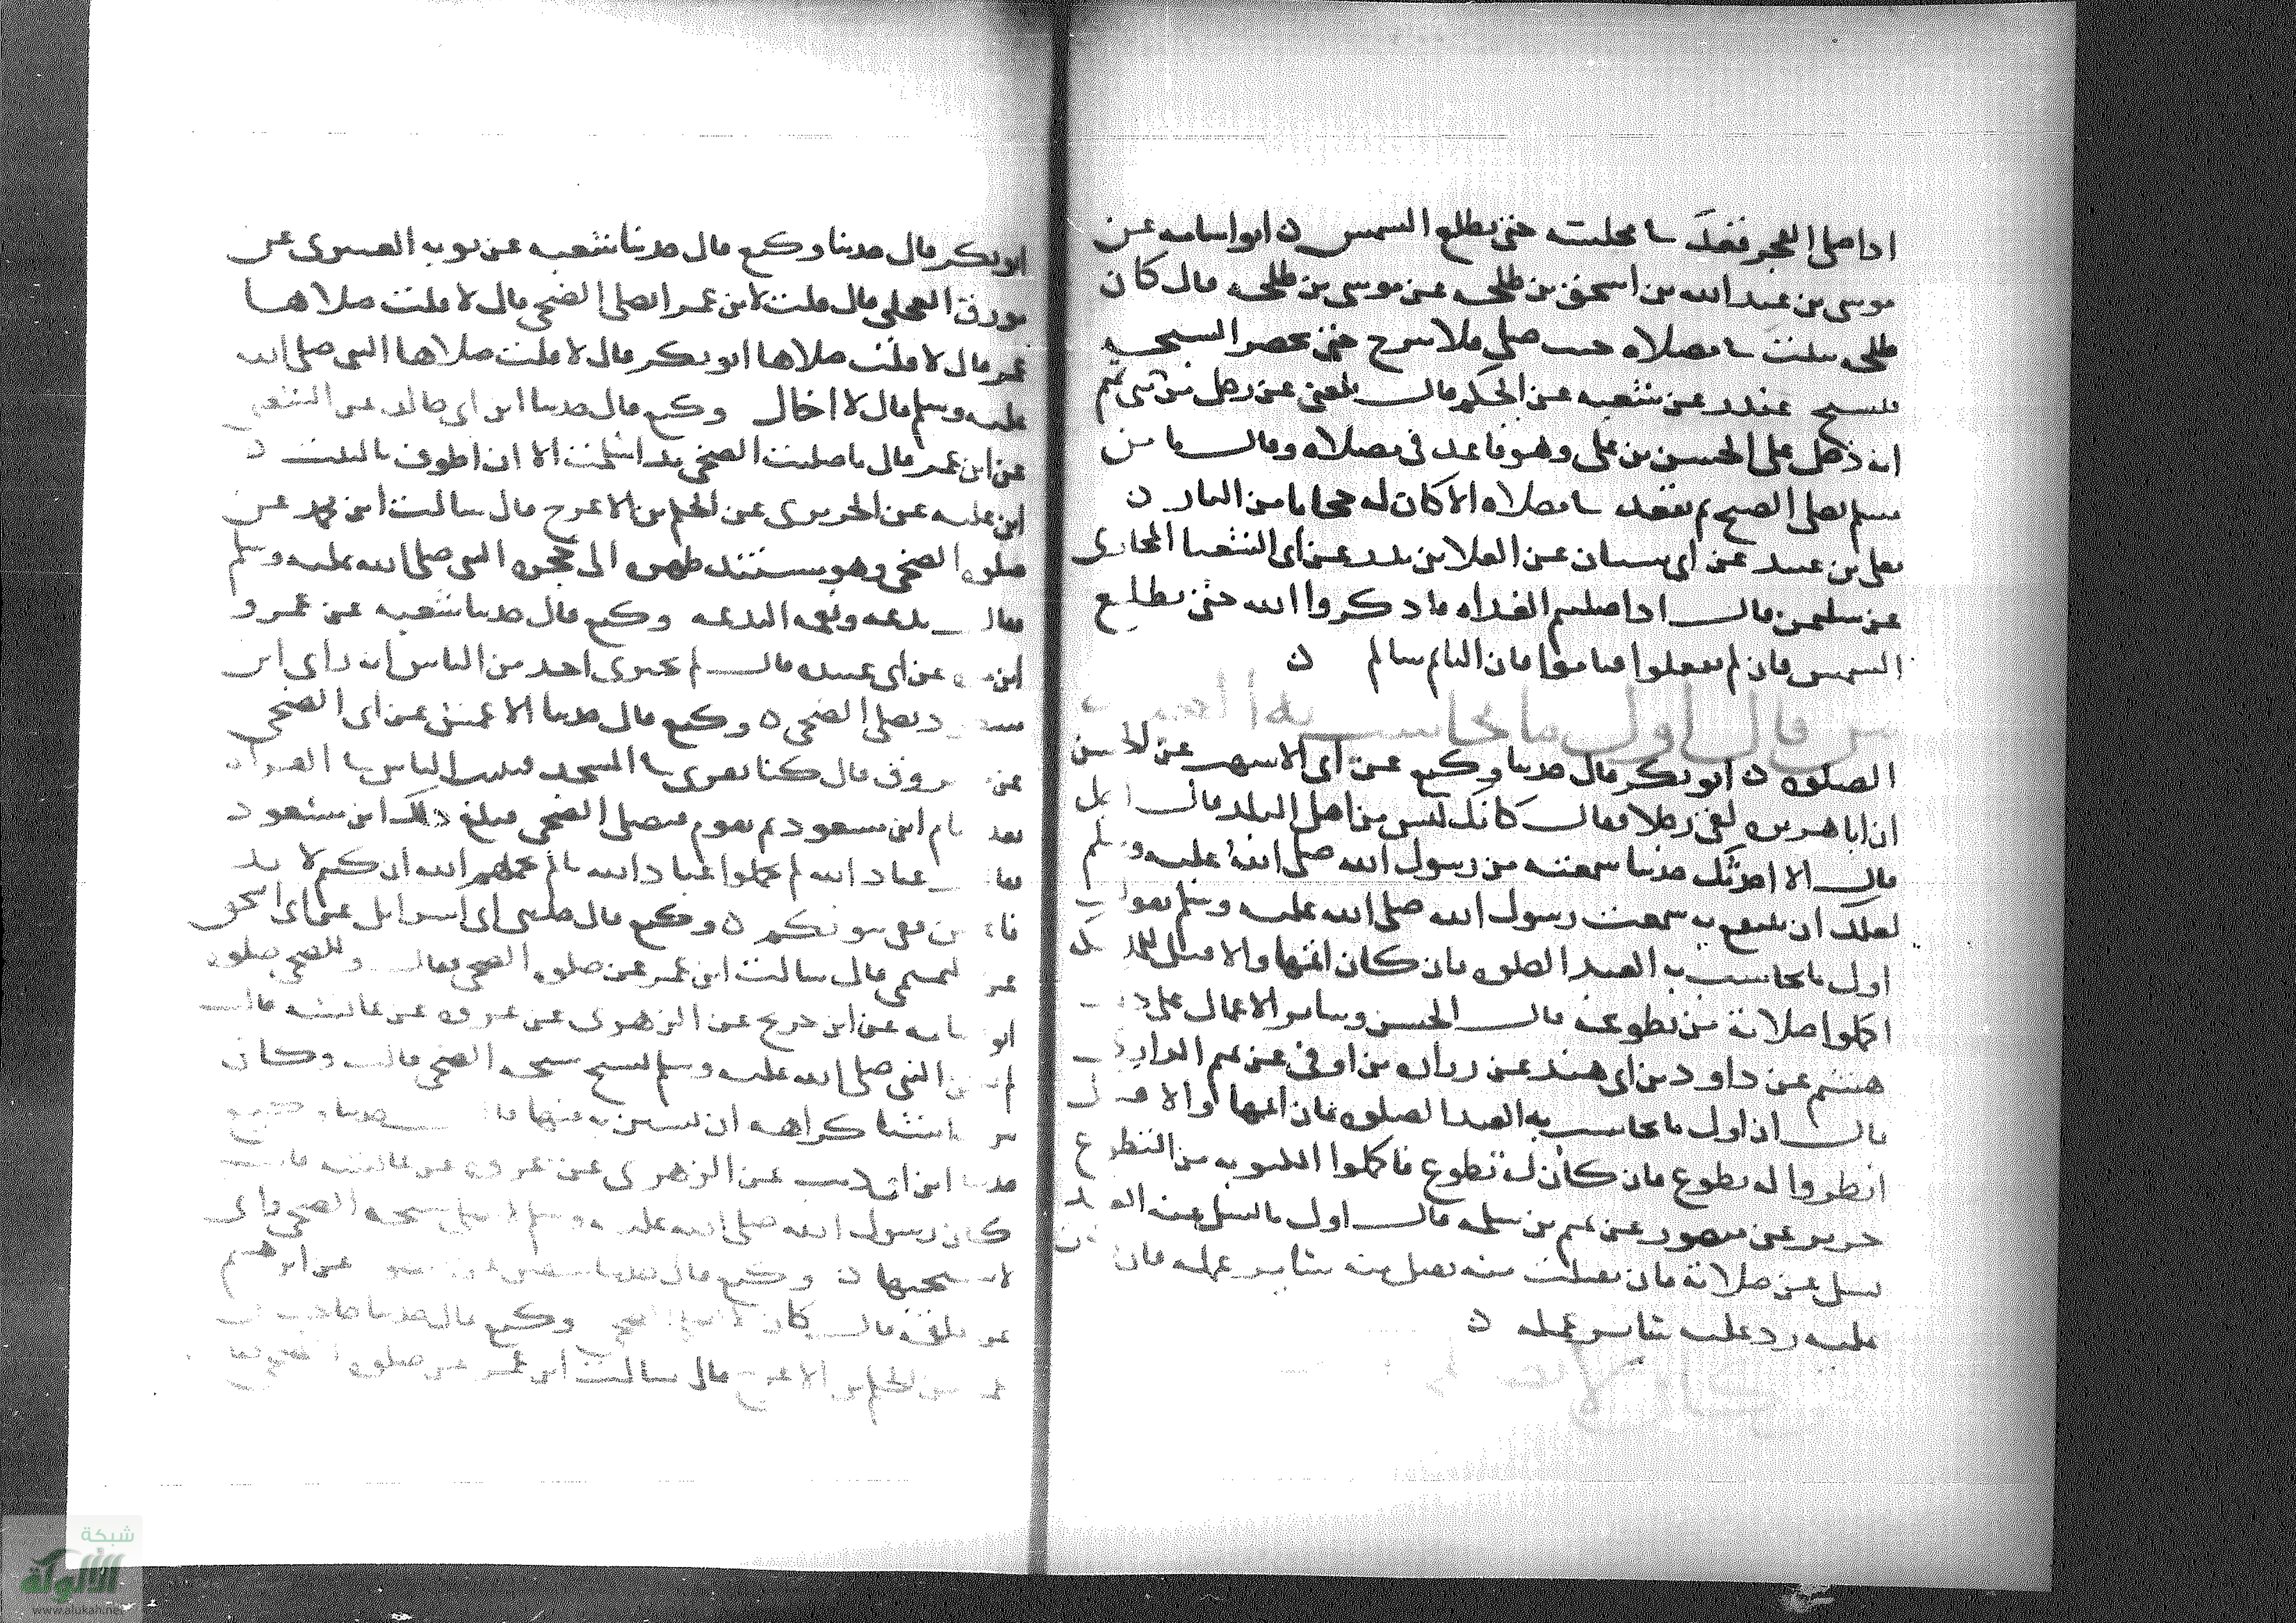 اذا صلى الفجر فقعد في مجلسه حتى تطلع الشمس ه ابو اسامه عن
موسى بن عبد الله بن اسحق بن طلحه عن موسى بن طلحه قال كان
طلحه يثبت في مصلاه حيث صلى فلا يبرح حتى تحضر السبحه
فيسبح غندر عن شعبه عن الحكم قال بلغني عن رجل من بني تميم
انه دخل على الحسن بن علي وهو قاعد في مصلاه وقال ما من
مسلم يصلي الصبح ثم يقعد في مصلاه الا كان له حجابا من النار ه
يعلى بن عبيد عن ابي سنان عن العلا بن بدر عن ابي الشعثا المحاربي
عن سليمن قال اذا صليتم الغداه فاذكروا الله حتى تطلع
الشمس فان لم تفعلوا فناموا فان النايم سالم ه
اول ما يحاسب به
الصلوه ه ابو بكر قال حدثنا وكيع عن ابي الاشهب عن الحسن
ان ابا هريره لقي رجلا فقال كانك لست من اهل البلد قال اجل
قال الا احدثك حديثا سمعته من رسول الله صلى الله عليه وسلم
لعلك ان تنتفع به سمعت رسول الله صلى الله عليه وسلم يقول
اول ما يحاسب به العبد الصلوه فان كان اتمها والا قيل
اكملوا صلاته من تطوعه قال الحسن وساير الاعمال على ذلك
هشيم عن داود بن ابي هند عن زراره بن اوفى عن تميم الداري
قال ان اول ما يحاسب به العبد الصلوه فان اتمها والا قيل
انظروا له تطوع فان كان له تطوع فاكملوا المكتوبه من التطوع
جرير عن منصور عن تميم بن سلمه قال اول ما يسل عنه العبد
يسل عن صلاته فان تقبلت منه تقبل منه ساير عمله فان
عليه رد عليه ساير عمله ه
ابو بكر قال حدثنا وكيع قال حدثنا شعبه عن توبه العنبري عن
مورق العجلي قال قلت لابن عمر اتصلي الضحى قال لا قلت صلاها
عمر قال لا قلت صلاها ابو بكر قال لا قلت صلاها النبي صلى الله
عليه وسلم قال لا اخال وكيع قال حدثنا ابن ابي خالد عن الشعبي
عن ابن عمر قال ما صليت الضحى منذ اسلمت الا ان اطوف بالبيت ه
ابن عليه عن الجريري عن الحكم بن الاعرج قال سالت ابن عمر عن
صلوه الضحى وهو مستند ظهره الى حجره النبي صلى الله عليه وسلم
فقال بدعه ونعمه البدعه وكيع قال حدثنا شعبه عن عمرو
ابن عن ابي عبيده قال لم يخبرني احد من الناس انه راى ابن
مسعود يصلي الضحى ه وكيع قال حدثنا الاعمش عن ابي الضحى
عن مسروق قال كنا نقرى في المسجد فيثبت الناس في القراه
بعد قيام ابن مسعود ثم نقوم فنصلي الضحى فبلغ ذلك ابن مسعود
فقال عباد الله لم تحملوا عباد الله ما لم يحملهم الله ان كنتم لا بد
فاعلين ففي بيوتكم ه وكيع قال حدثني ابي اسرايل عن ابي اسحق
عن التميمي قال سالت ابن عمر عن صلوه الضحى فقال وللضحى صلوه
ابو اسامه عن ابن جريج عن الزهري عن عروه عن عايشه قالت
لم يكن النبي صلى الله عليه وسلم يسبح سبحه الضحى قالت وكان
يترك اشيا كراهه ان يستن به فيها
حدثنا ابن ابي ذيب عن الزهري عن عروه عن عايشه قالت
كان رسول الله صلى الله عليه وسلم سبحه الضحى واني
لاسبحها ه وكيع قال عن ابراهيم
عن علقمه قال كان لا يصلي الضحى وكيع قال حدثنا حاجب
عن الحكم بن الاعرج قال سالت ابن عمر عن صلوه الضحى
شبكة
الألوكة
www.alukah.net